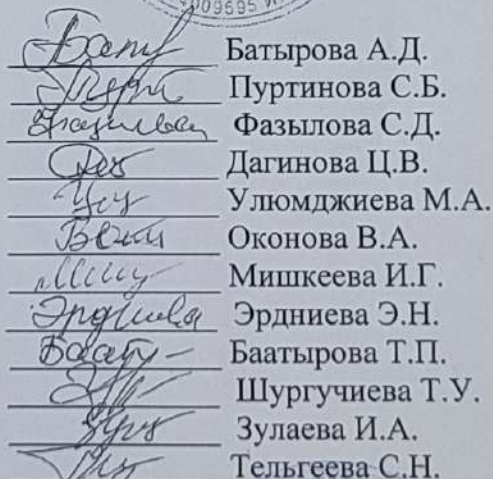 Батырова А.Д.
Пуртинова С.Б.
Фазылова С.Д.
Дагинова Ц.В.
Улюмджиева М.А.
Оконова В.А.
Мишкеева И.Г.
Эрдниева Эрдниева Э.Н.
Баатырова Т.П.
Шургучиева Т.У.
Зулаева И.А.
Тельгеева С.Н.